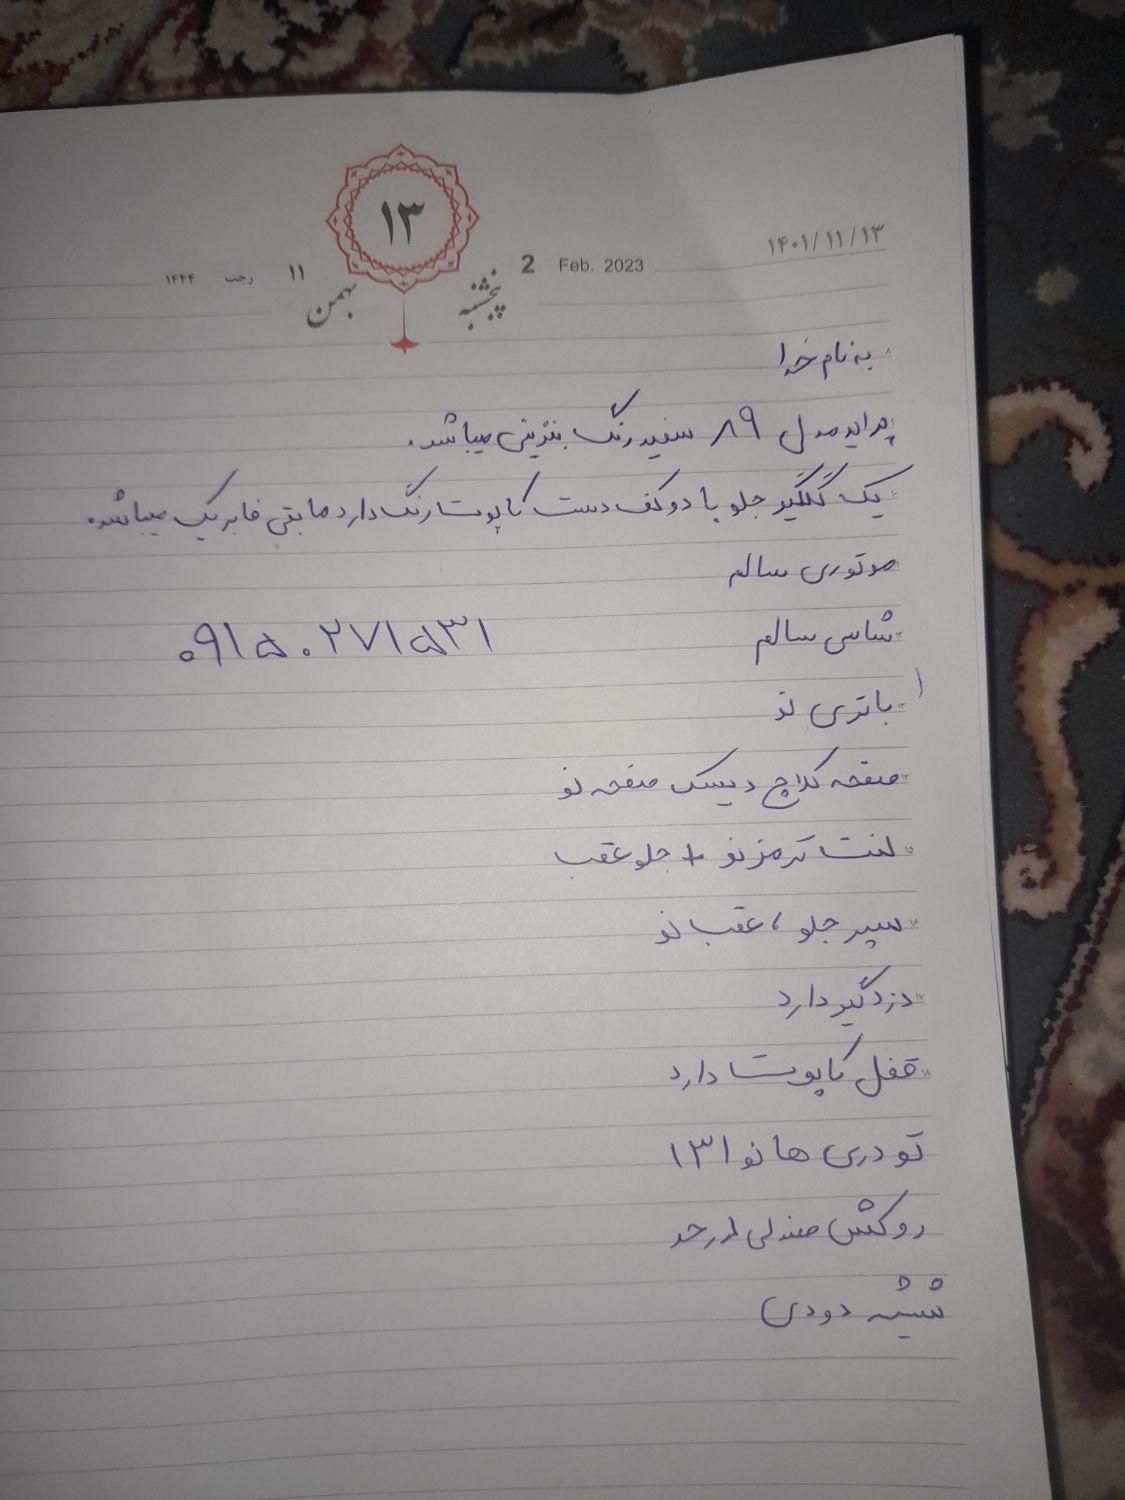 ۱۳
۱۴۰۱/۱۱/۱۳
2 Feb. 2023
پنجشنبه
بهمن
۱۱ رجب ۱۴۴۴
۸ به نام خدا
پراید مدل ۸۹ سفید رنگ بنزینی میباشد.
یک گلگیر جلو با دو کف دست کاپوت رنگ دارد مابقی فابریک میباشد
موتوری سالم
۱۲ شاسی سالم
۰۹۱۵۰۲۷۱۵۳۱
۱۳ باتری نو
۱۴ صفحه کلاچ دیسک صفحه نو
۱۵ لنت ترمز نو + جلو عقب
۱۶ سپر جلو ، عقب نو
۱۷ دزدگیر دارد
۱۸ قفل کاپوت دارد
تودری ها نو ۱۳۱
روکش صندلی
شیشه دودی